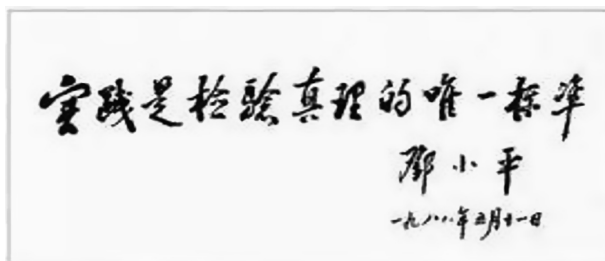 实践是检验真理的唯一标準
邓小平
一九八八年五月十一日